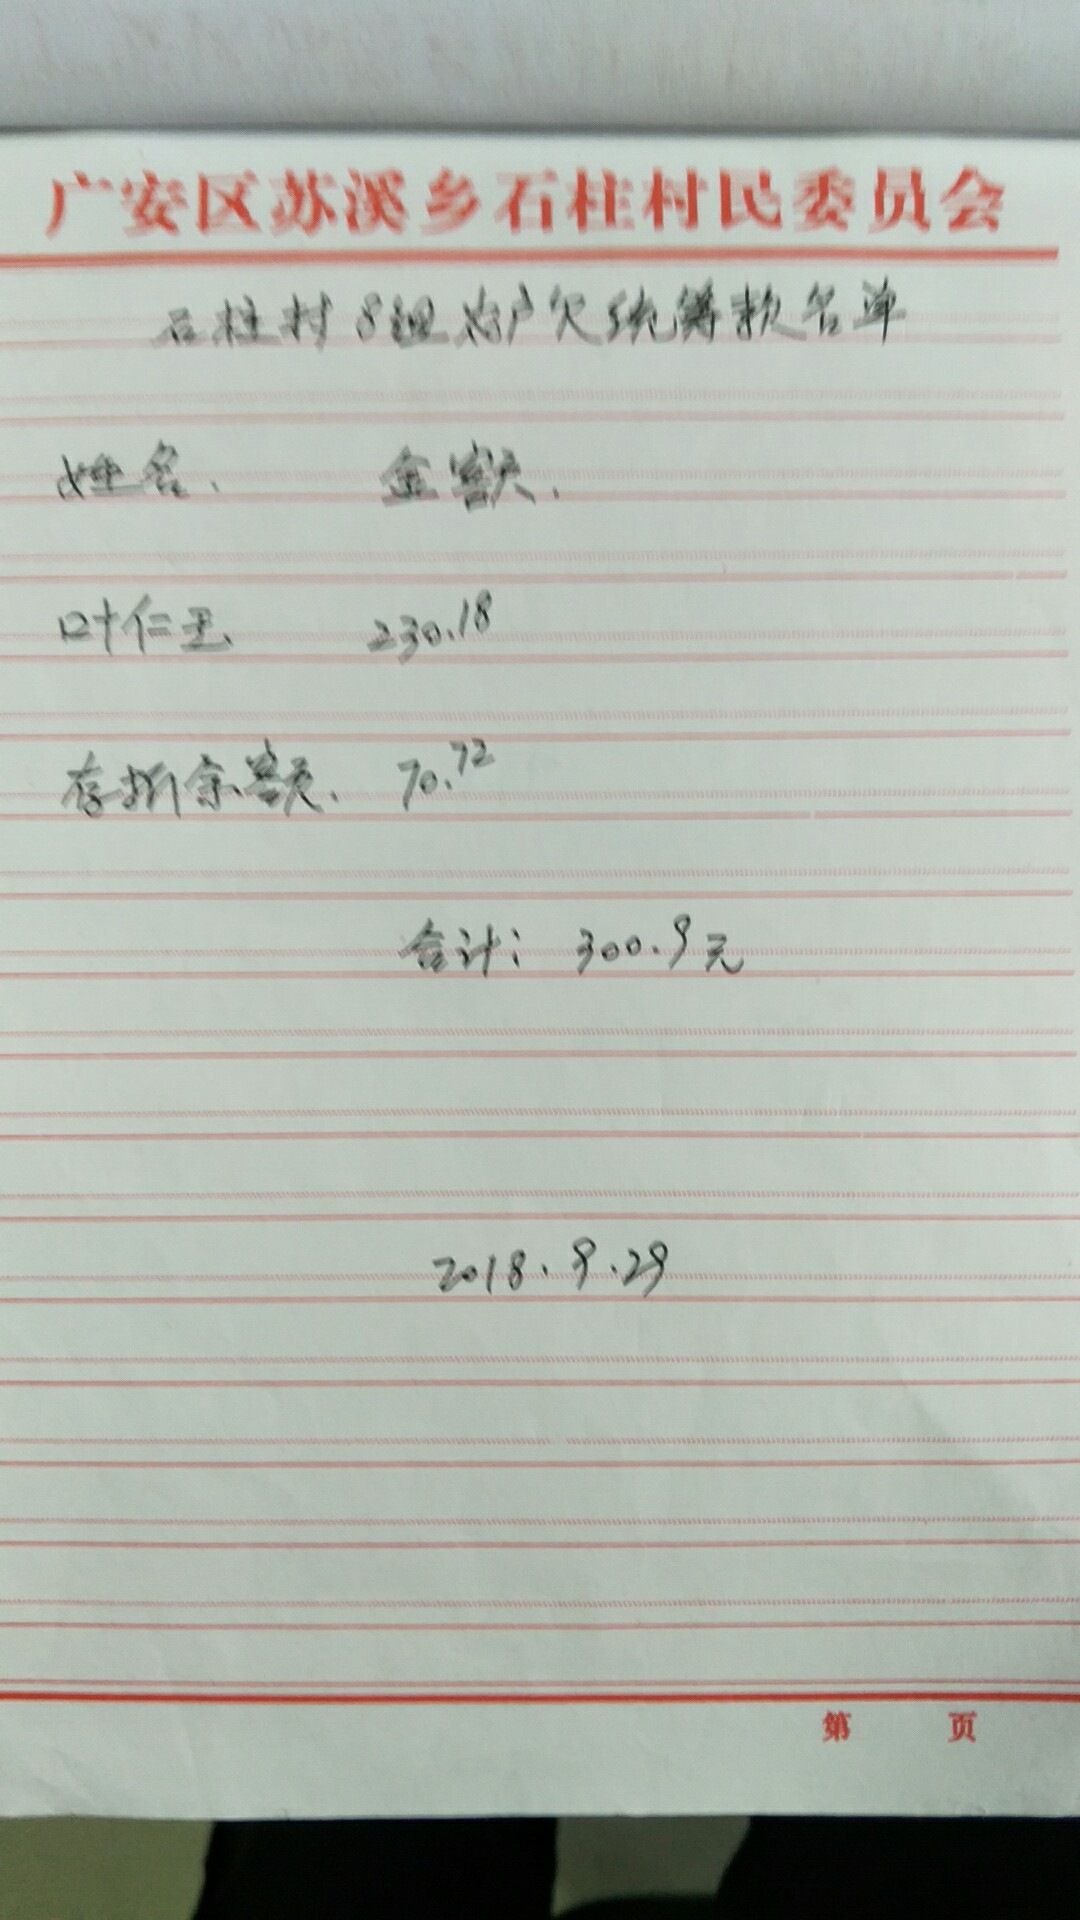 广安区苏溪乡石柱村民委员会
石柱村8组农户欠统筹款名单
姓名. 金额.
叶仁玉 230.18
存折余额. 70.72
合计: 300.9元
2018.9.29
第 页